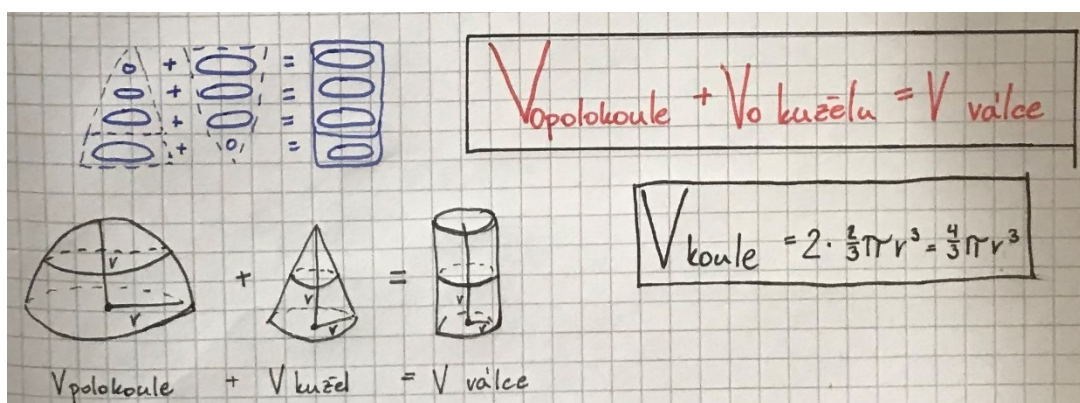 + =
+ =
+ =
+ =
Vopolokoule + Vo kuželu = V válce
V koule = 2 · 2/3 πr³ = 4/3 πr³
r r + r r = r r
V polokoule + V kužel = V válce